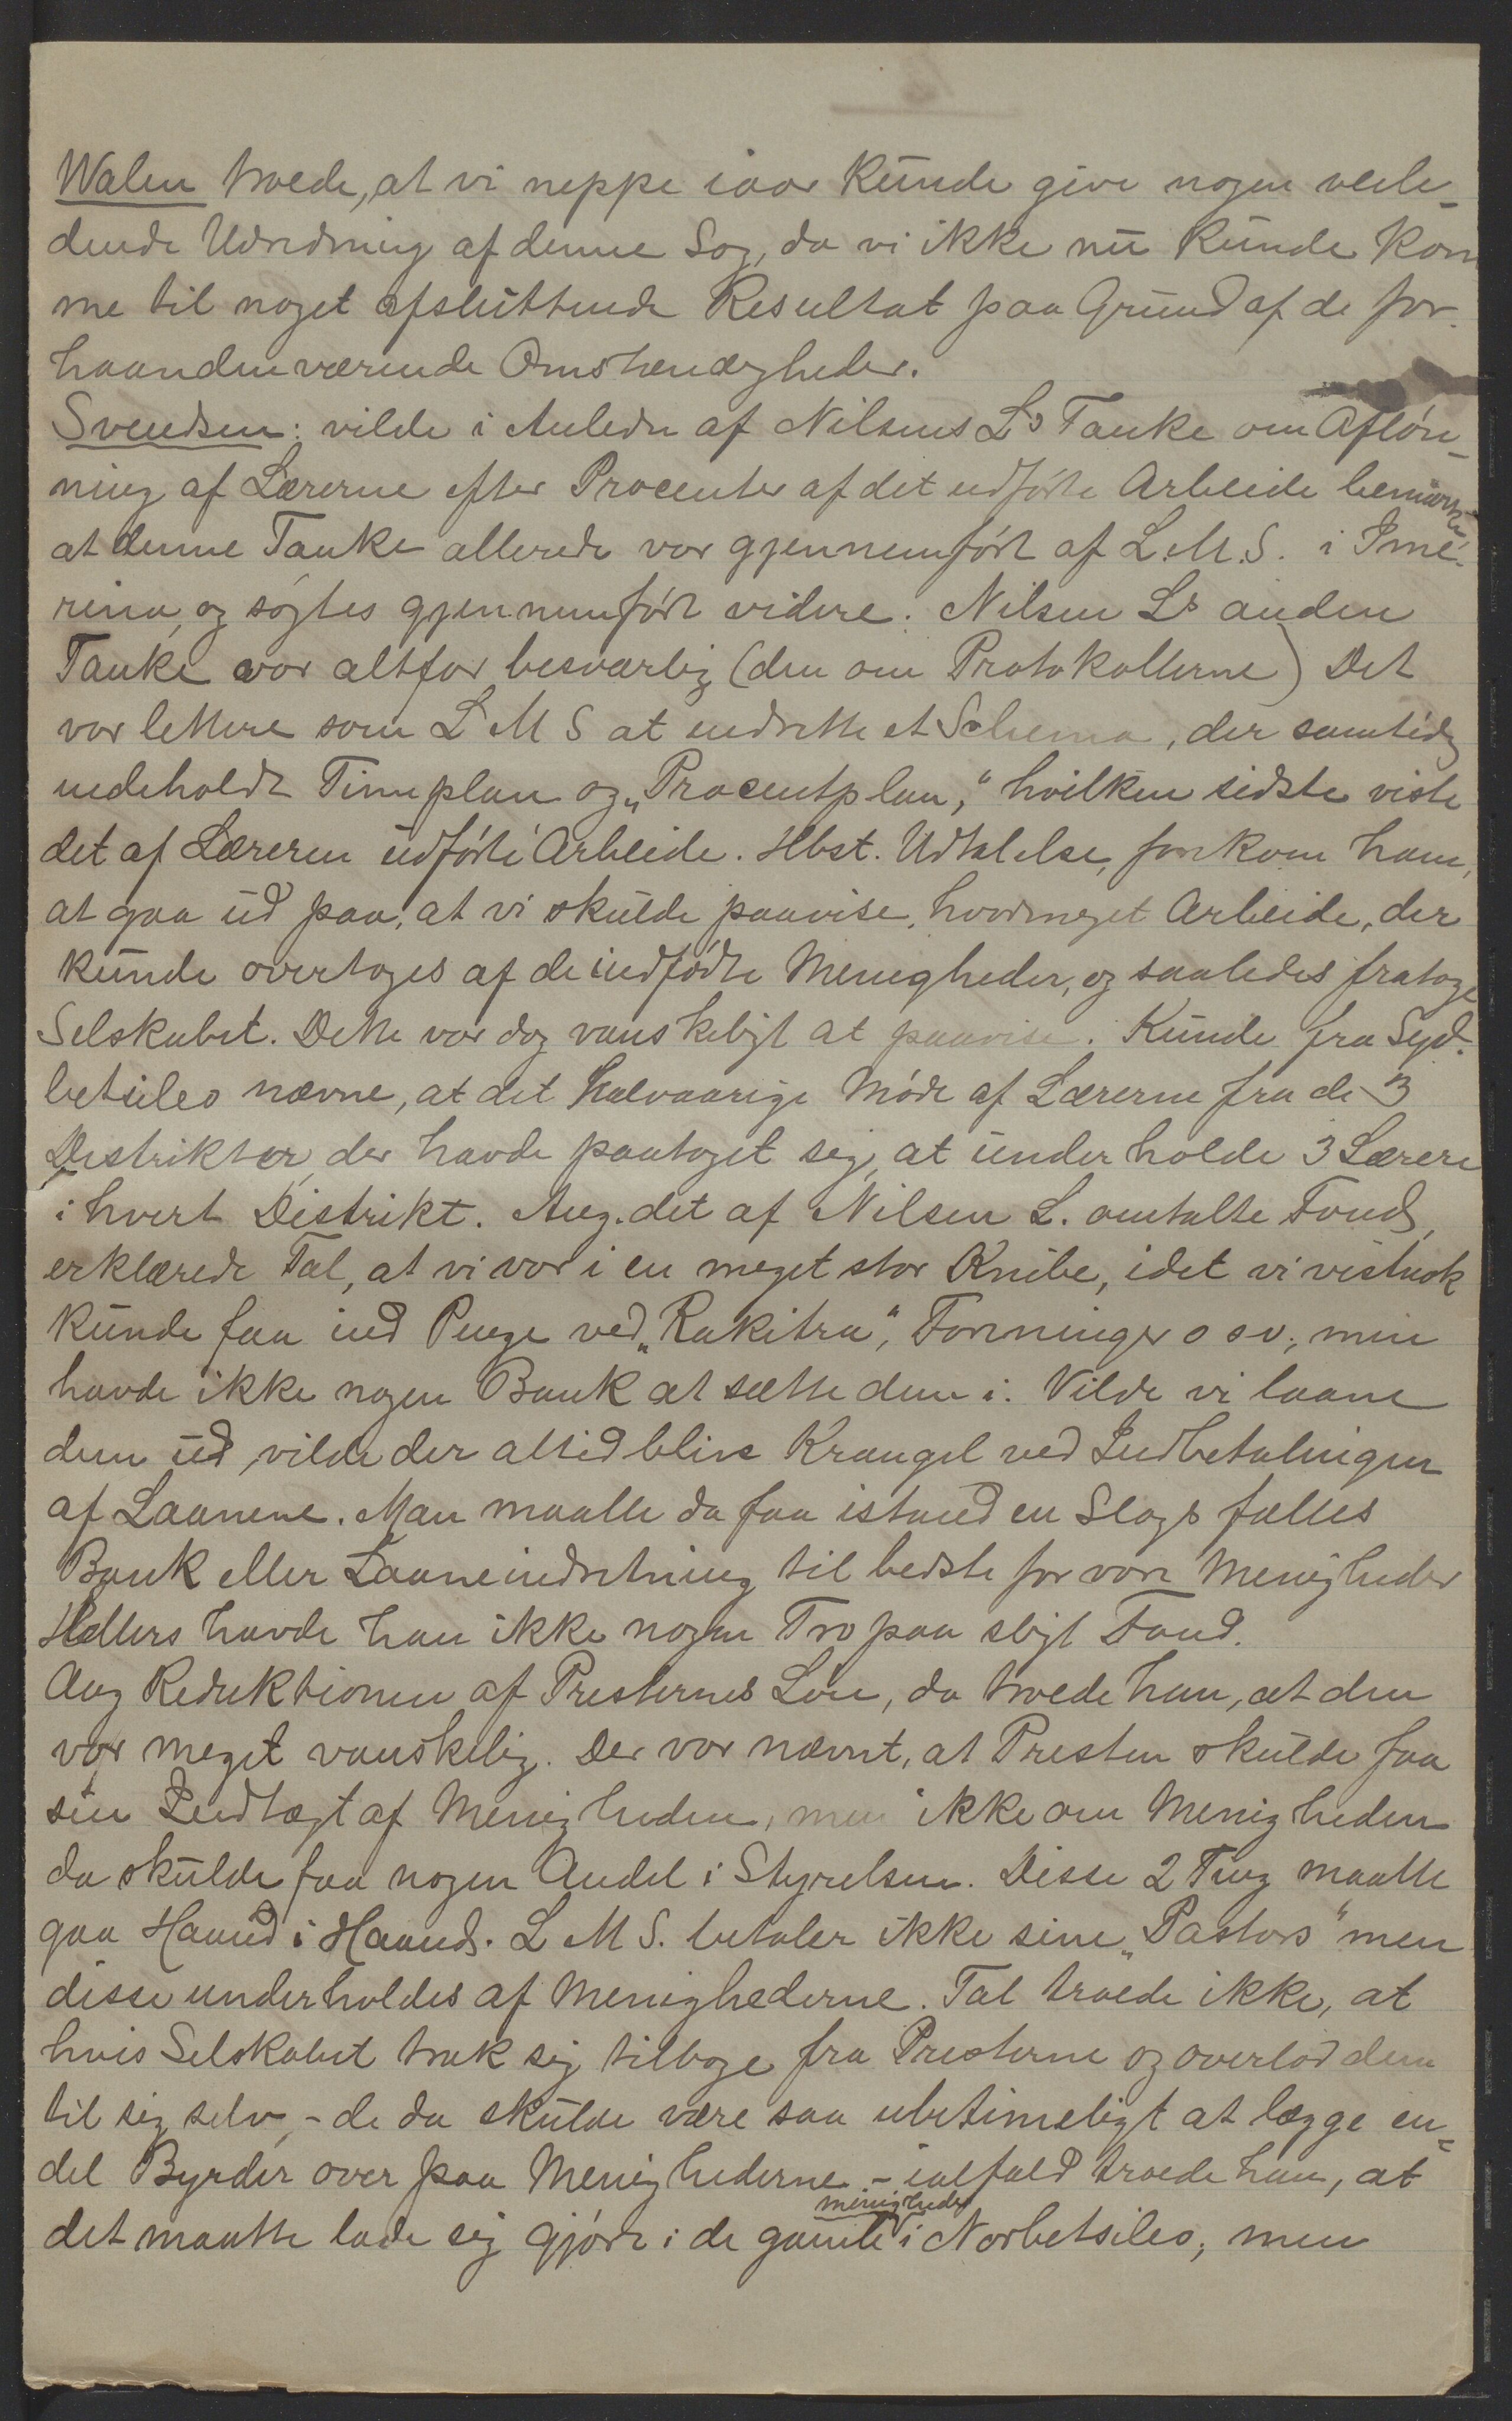 Walen troede, at vi neppe iaar kunde give nogen veile-
dende Udredning af denne Sag, da vi ikke nu kunde kom
me til noget afsluttende Resultat paa Grund af de for-
haandenværende Omstændigheder.
Svendsen: vilde i Anledn af Nilsens L's Tanke om Afløn-
ning af Lærerne efter Procenter af det udførte Arbeide bemærke
at denne Tanke allerede var gjennemført af L.M.S. i Ime-
rina, og søgtes gjennemført videre. Nilsen Ls anden
Tanke var altfor besværlig (den om Protokollerne) Det
var lettere som L M S at indrette et Schema, der samtidig
indeholdt Timeplan og „Procentplan," hvilken sidste viste
det af Læreren udførte Arbeide. Hbst. Udtalelse forekom ham,
at gaa ud paa, at vi skulde paavise, hvormeget Arbeide, der
kunde overtages af de indfødte Menigheder, og saaledes fratage
Selskabet. Dette var dog vanskeligt at paavise. Kunde fra Syd-
betsileo nævne, at det halvaarige Møde af Lærerne fra de 3
Distrikter, der havde paataget sig, at underholde 3 Lærere
i hvert Distrikt. Ang. det af Nilsen L. omtalte Fond,
erklærede Tal, at vi var i en meget stor Knibe, idet vi vistnok
kunde faa ind Penge ved „Rakitra", Foreninger osv, men
havde ikke nogen Bank at sætte dem i. Vilde vi laane
dem ud, vilde der altid blive Krangel ved Indbetalingen
af Laanene. Man maatte da faa istand en Slags fælles
Bank eller Laaneindretning til bedste for vore Menigheder
Hellers havde han ikke nogen Tro paa sligt Fond.
Ang Reduktionen af Presternes Løn, da troede han, at den
var meget vanskelig. Der var nævnt, at Presten skulde faa
sin Indtægt af Menigheden, men ikke om Menigheden
da skulde faa nogen Andel i Styrelsen. Disse 2 Ting maatte
gaa Haand i Haand. L M S. betaler ikke sine „Pastors" men
disse underholdes af Menighederne. Tal troede ikke, at
hvis Selskabet trak sig tilbage fra Presterne og overlod dem
til sig selv, - de da skulde være saa ubetimeligt at lægge en-
del Byrder over paa Menighederne - ialfald troede han, at
det maatte lade sig gjøre i de gamle menigheder i Norbetsileo, men